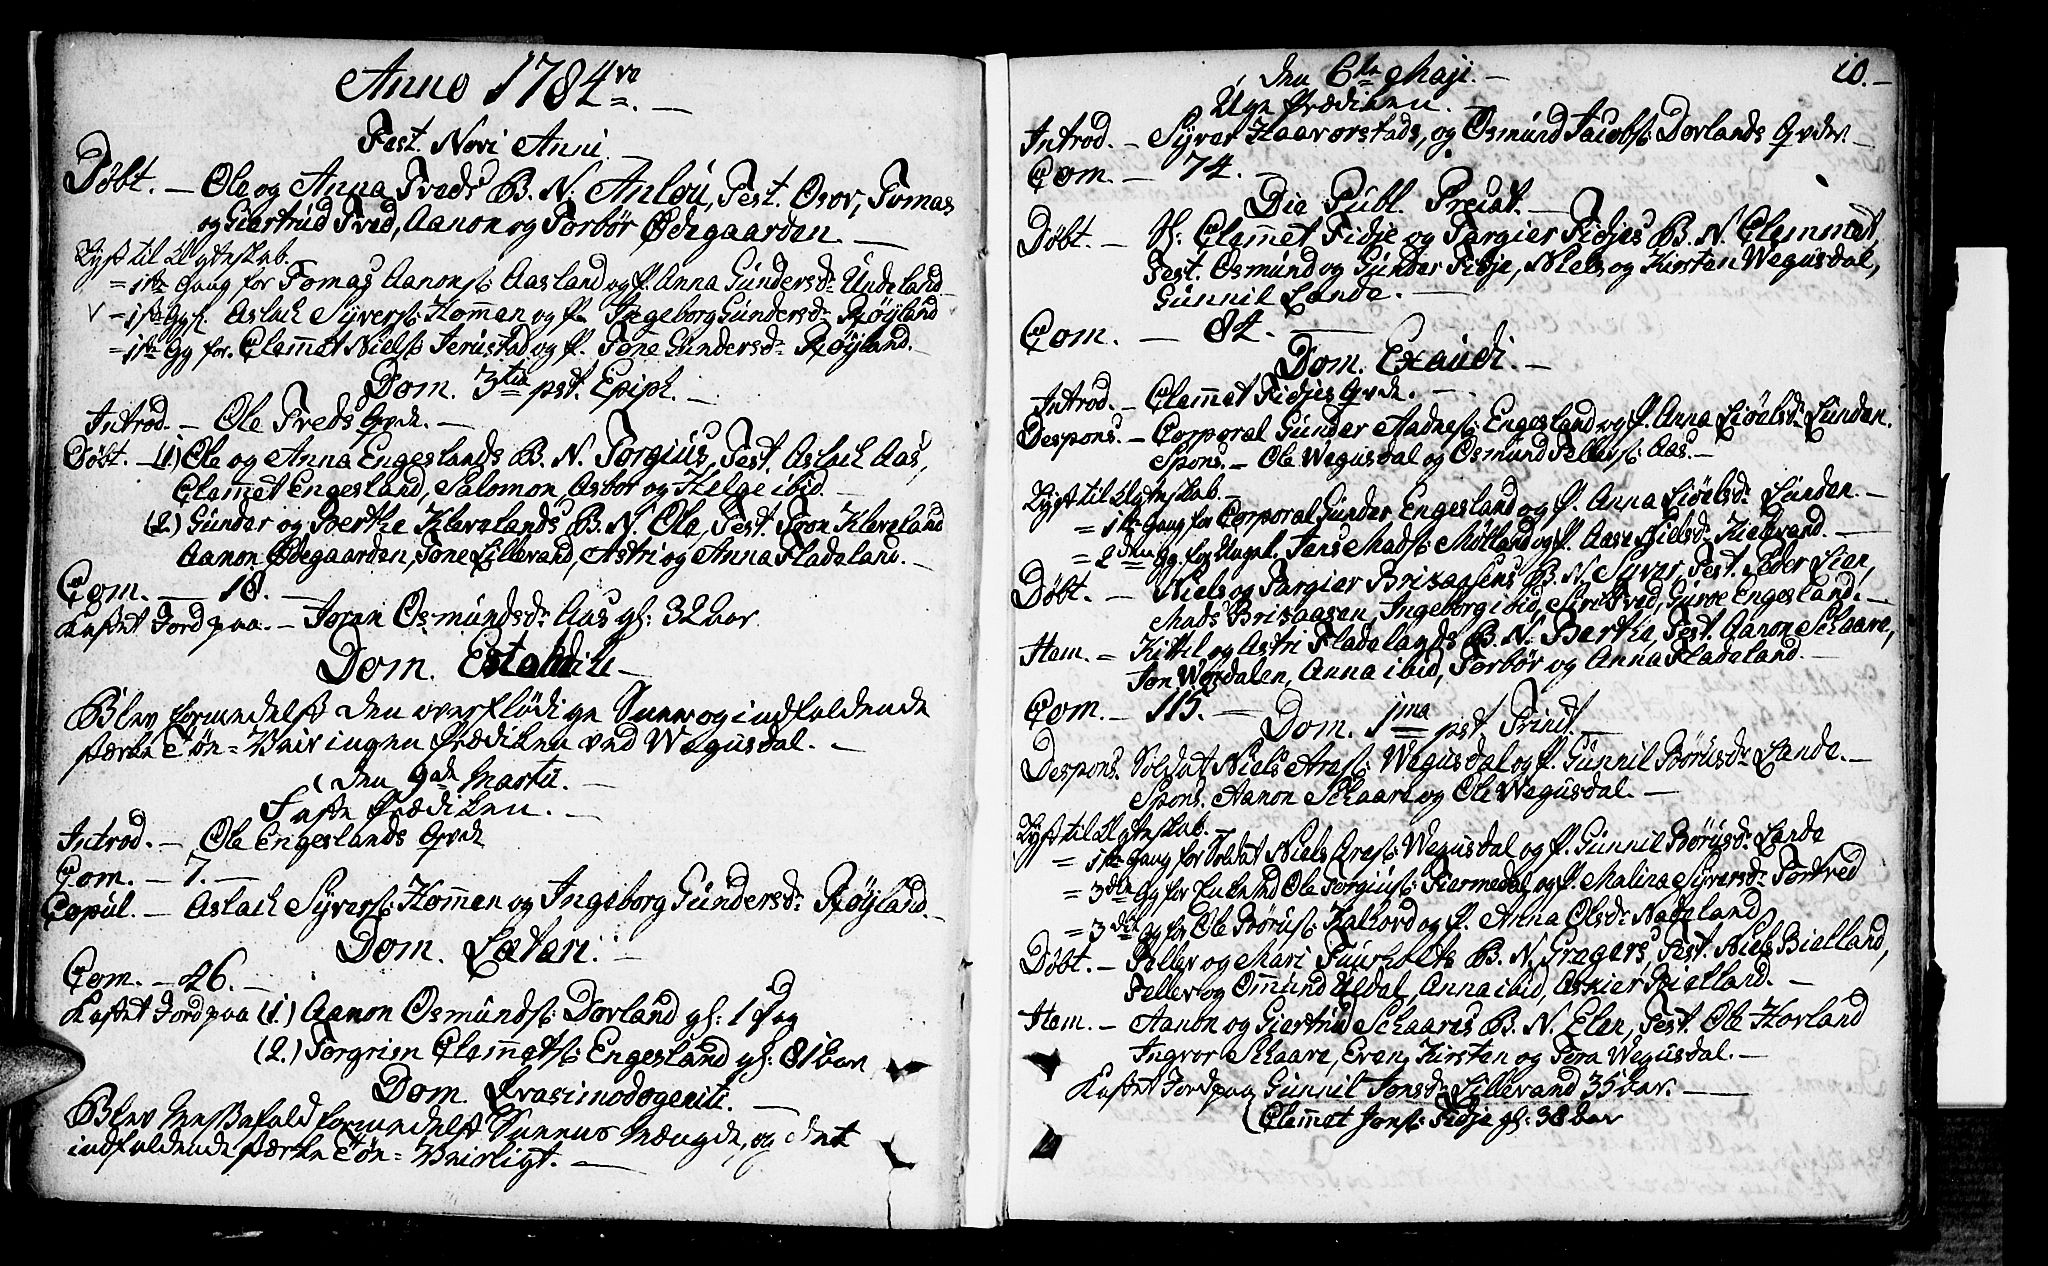 Anno 1784 ve
Fest. Novi Anni.
Döbt. — Ole og Anna Tveds B. N. Anlou, Test. Osov, Tomas
og Giertrud Tved, Aanon og Torbör Ödegaarden. —
Lyst til Ægteskab.
= 1ste Gang for Tomas Aanons: Aasland og P. Anna Gundersdr Uudeland
v — 1ste Gg f: Aslach Syvers: Hommen og P. Ingeborg Gundersdr Röyland
= 1ste Gg for Clemmet Niels: Jerustad og P. Tone Gundersdr Röyland. —
Dom. 3tia pst. Epiph. —
Introd. — Ole Tveds Qvde. —
Döbt. — (1.) Ole og Anna Engeslands B. N. Torgius, Test. Aslach Aas,
Clemmet Engesland, Salomon, Asbör og Helge ibid. —
(2.) Gunder og Berthe Klevelands B. N. Ole, Test. Tron Kleveland
Aanon Ödegaarden, Tone Lillevand, Astri og Anna Fladeland. —
Com. — 18. —
Kastet Jord paa. — Joran Osmundsdr Aas gl: 32 Aar.
Dom. Estomihi —
Blev formedelst den overflödige Snee og indfaldende
stærke Töe=Veir ingen Prædiken ved Wegusdal. —
den 9de Martii. —
Faste Prædiken. —
Introd. — Ole Engeslands Qvde
Com. — 7. —
Copul. — Aslach Syvers: Hommen og Ingeborg Gundersdr Röyland. —
Dom. Lætari. —
Com. — 46. —
Kastet Jord paa (1.) Aanon Osmunds: Dovland gl: 1 Dag
(2.) Torgrim Clemmets: Engesland gl: 81 Aar
Dom. Qvasimodogeniti. —
Blev Messefald formedelst Sneens Mængde, og det
indfaldende stærke Töe=Veirligt. —
10. —
den 6te Maji. —
Uge Prædiken. —
Introd. — Syver Haavorstads, og Osmund Jacobs: Dovlands Qvder —
Com. — 74. —
Die Publ. Precat. —
Döbt. — Sl: Clemmet Fidje og Targier Fidjes B. N. Clemmet,
Test. Osmund og Gunder Fidje, Niels og Kirsten Wegusdal,
Gunnil Lande. —
Com. — 84. —
Dom. Exaudi. —
Introd. — Clemmet Fidjes Qvde. —
Despons. — Corporal Gunder Aadnes: Engesland og P. Anna Liöelsdr Lunden.
Spons. — Ole Wegusdal og Osmund Tellefs: Aas. —
Lyst til Ægteskab. —
= 1ste Gang for Corporal Gunder Engesland og P. Anna Liöelsdr Lunden. —
= 2den Gg for Ungk. Jens Mads: Mölland og P. Aase Nielsdr Kiedevand. —
Döbt. — Niels og Targier Brisaasens B. N. Syver, Test. Peder Lien,
Mads Brisaasen, Ingeborg ibid, Siri Tved, Guroe Engesland. —
Item. — Kittil og Astri Fladelands B. N. Berthe, Test. Aanon Schaare,
Jon Wordalen, Anna ibid, Torbör og Anna Fladeland. —
Com. — 115. —
Dom. 1ma pst. Trinit. —
Despons. Soldat Niels Ares: Wegusdal og P. Gunnil Börusdr Lande. —
Spons. Aanon Schaare og Ole Wegusdal. —
Lyst til Ægteskab. —
= 1ste Gang for Soldat Niels Ares: Wegusdal og P. Gunnil Börusdr Lande
= 3die Gg for Enkemd Ole Torgius: Tiermedal og P. Malina Syversdr Tortved
= 3die Gg for Ole Börus: Kalvord og P. Anna Olsdr Nadeland
Döbt. — Tellev og Mari Fuurholts B. N. Gregers, Test. Niels Bielland,
Tellev og Ommund Uldal, Anna ibid, Askier Bielland. —
Item. — Aanon og Giertrud Schaares B. N. Elen, Test. Ole Hovland
Ingvor Schaare, Even, Kirsten og Tora Wegusdal. —
Kastet Jord paa Gunnil Jonsdr Lillevand 35 Aar. —
Clemmet Jons: Fidje gl: 38 Aar